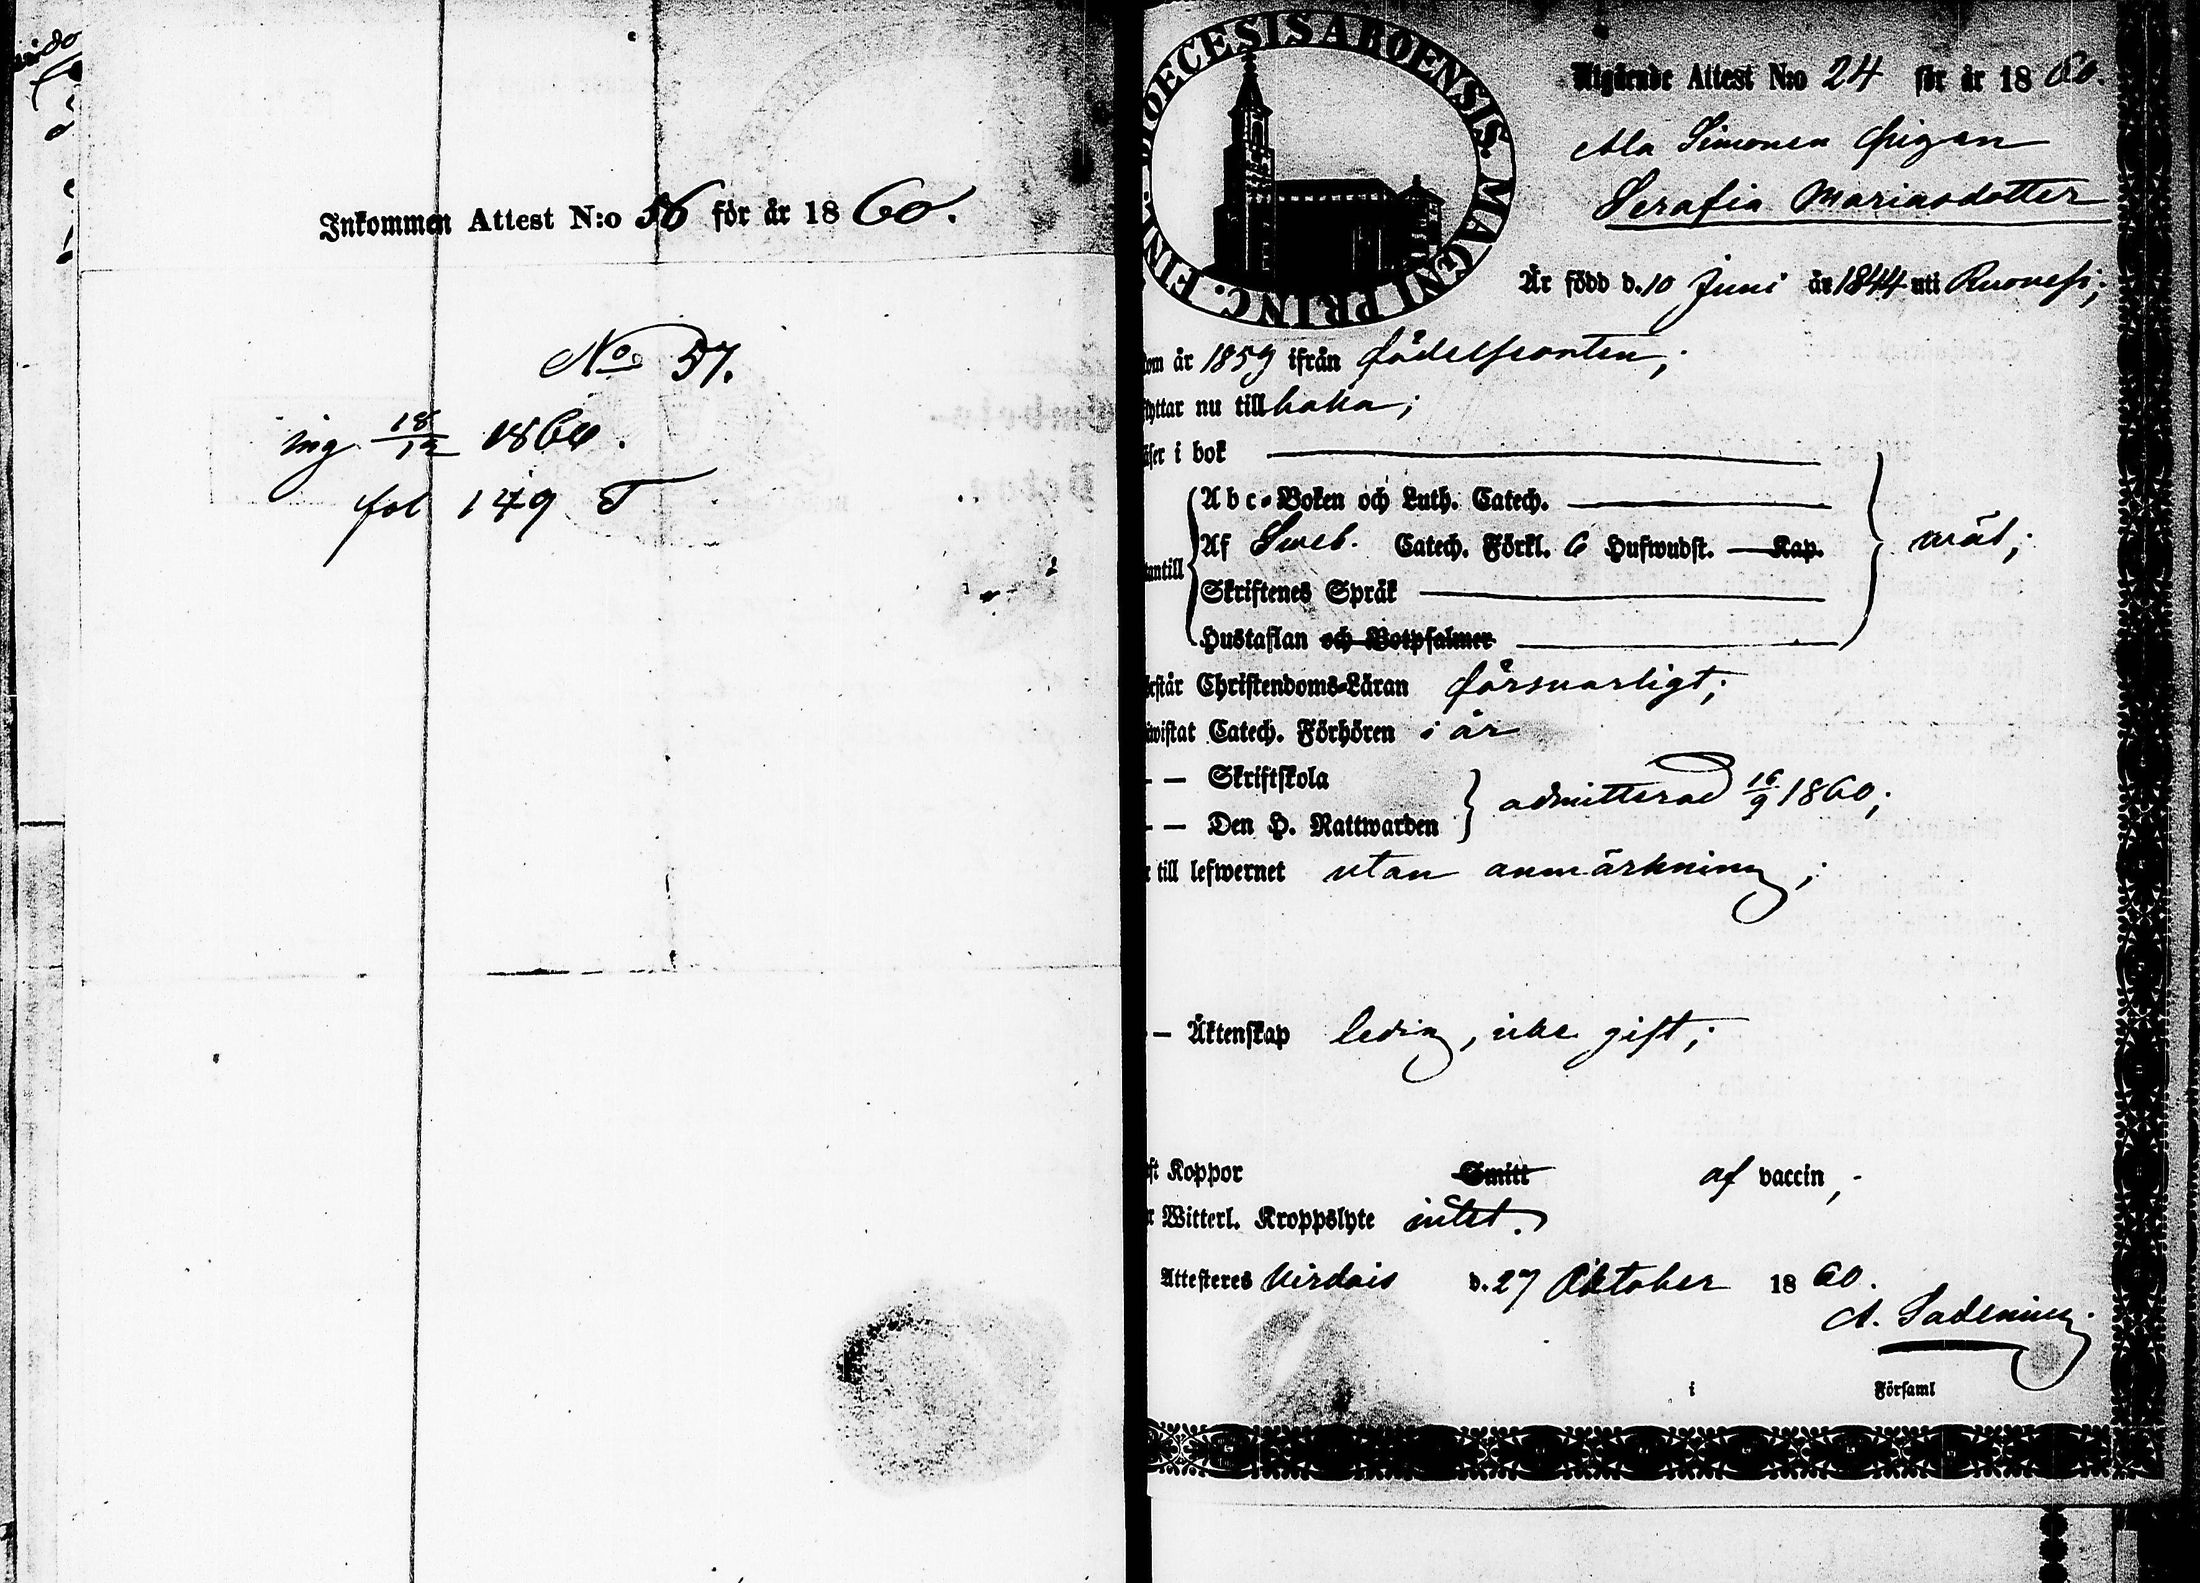 Inkommen Attest N:o 56 för år 1860.
No 57.
ing 18/12 1860.
fol 149 T
DIOECESIS ABOENSIS. MAGNI PRINC. FINL.
Utgående Attest N:o 24 för år 1860.
Ala Simonen Pigan
Serafia Mariasdotter
Är född d. 10 Juni år 1844 uti Ruovesi;
om år 1859 ifrån födelseorten;
flyttar nu tillbaka;
i bok
Abc-Boken och Luth. Catech.
Af Sveb. Catech. Förkl. 6 Hufwudst. Kap.
antill
Skriftenes Språk
Hustaflan och Botpsalmer
står Christendoms-Läran försvarligt;
wistat Catech. Förhören i år
— — Skriftskola
— — Den H. Nattwarden admitterad 16/9 1860;
till lefwernet utan anmärkning;
— Äktenskap ledig, icke gift;
Koppor Smitt af vaccin,
Witterl. Kroppslyte intet.
Attesteres Virdois d. 27 Oktober 1860.
i Församl